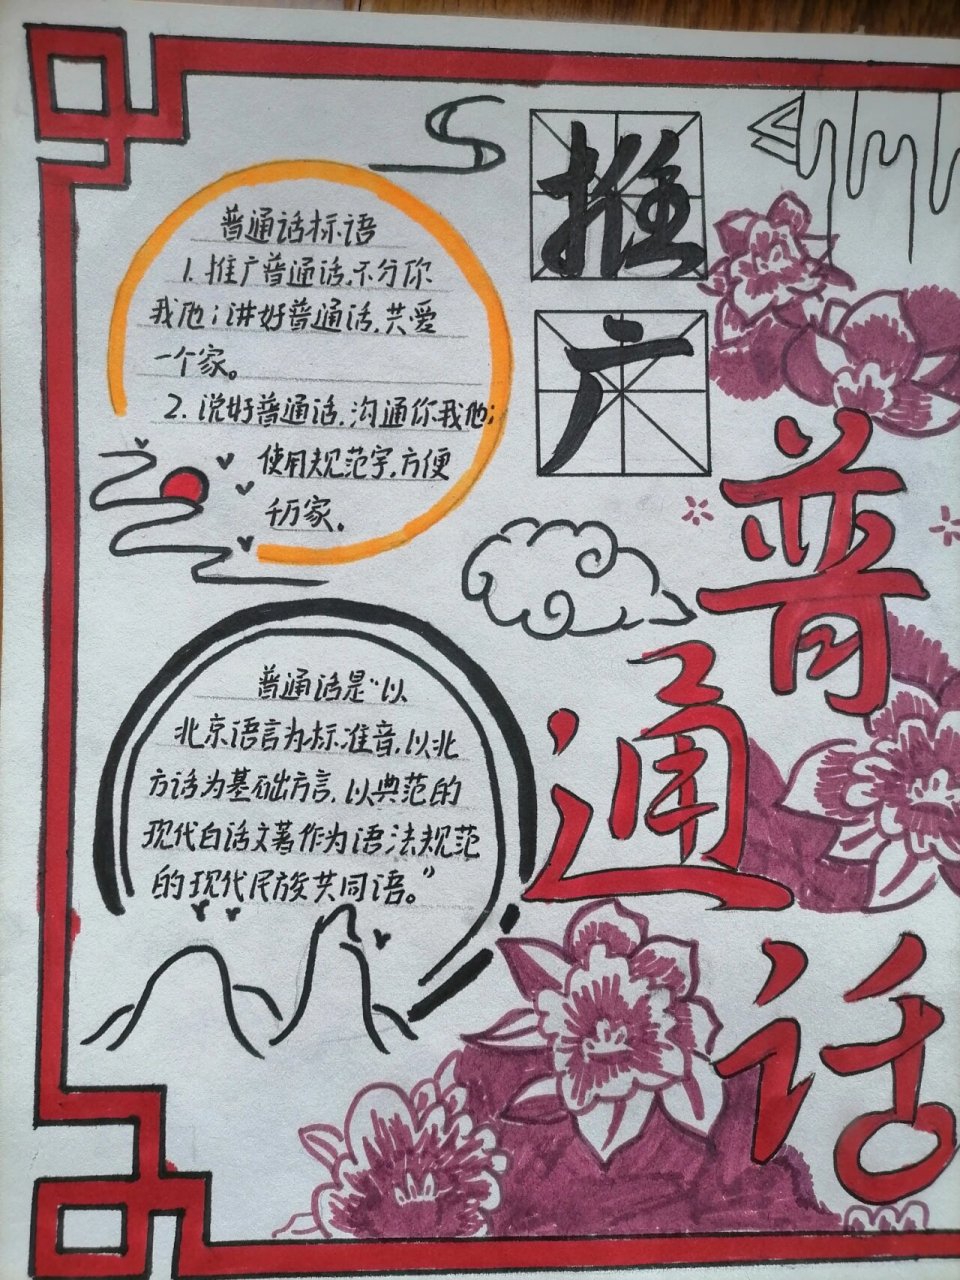 推
广
普
通
话
普通话标语
1.推广普通话,不分你
我他;讲好普通话,共爱
一个家。
2.说好普通话,沟通你我他;
使用规范字,方便
千万家.
普通话是“以
北京语言为标准音,以北
方话为基础方言,以典范的
现代白话文著作为语法规范
的现代民族共同语。”